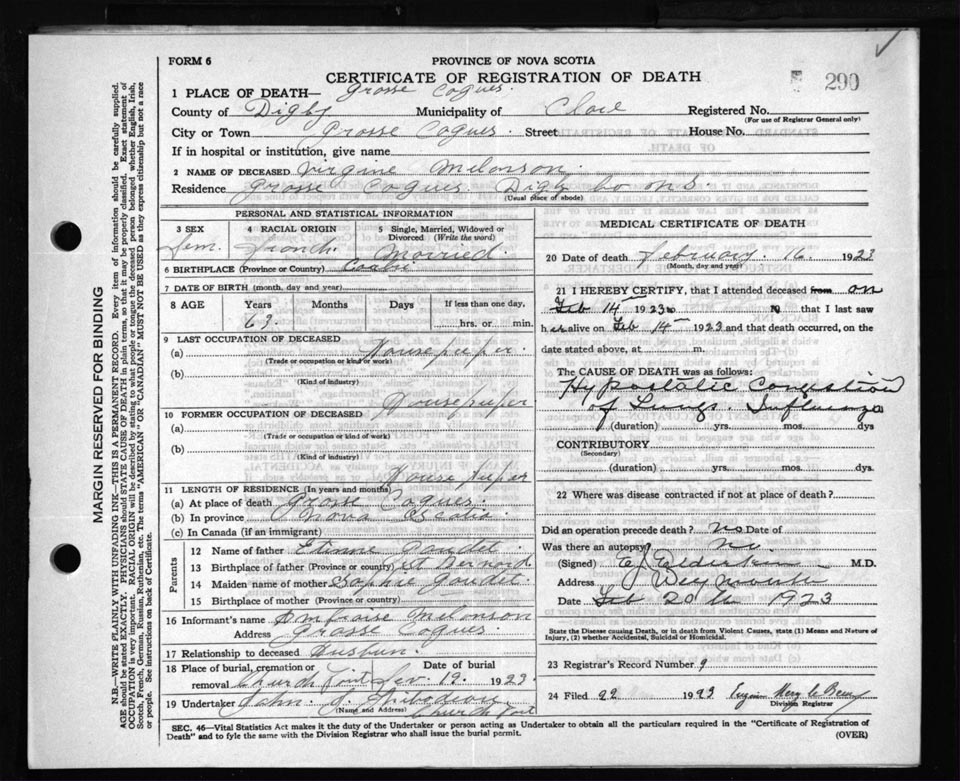 FORM 6
PROVINCE OF NOVA SCOTIA
CERTIFICATE OF REGISTRATION OF DEATH
290
1 PLACE OF DEATH— Grosse Coques.
County of Digby Municipality of Clare Registered No.
(For use of Registrar General only)
City or Town Grosse Coques. Street House No.
If in hospital or institution, give name
2 NAME OF DECEASED Virgine Melonson.
Residence Grosse Coques. Digby Co N.S.
(Usual place of abode)
PERSONAL AND STATISTICAL INFORMATION
3 SEX Fem.
4 RACIAL ORIGIN French
5 Single, Married, Widowed or Divorced (Write the word) Married.
6 BIRTHPLACE (Province or Country)
7 DATE OF BIRTH (month, day and year)
8 AGE Years Months Days If less than one day,
63. hrs. or min.
9 LAST OCCUPATION OF DECEASED
(a) Housekeeper.
(Trade or occupation or kind of work)
(b)
(Kind of industry)
10 FORMER OCCUPATION OF DECEASED Housekeeper
(a)
(Trade or occupation or kind of work)
(b)
(Kind of industry)
Housekeeper
11 LENGTH OF RESIDENCE (In years and months)
(a) At place of death Grosse Coques.
(b) In province Nova Scotia
(c) In Canada (if an immigrant)
Parents
12 Name of father Etienne
13 Birthplace of father (Province or country) St Bernard
14 Maiden name of mother Sophie Goudet.
15 Birthplace of mother (Province or country)
16 Informant's name Ambroise Melonson
Address Grosse Coques
17 Relationship to deceased
18 Place of burial, cremation or removal Church Point Date of burial 19. 1923.
19 Undertaker John. J. Thibodeau
(Name and Address) Church Point
MEDICAL CERTIFICATE OF DEATH
20 Date of death February. 16. 1923
(Month, day and year)
21 I HEREBY CERTIFY, that I attended deceased from on
Feb 14th 1923 to 19 that I last saw
h er alive on Feb 14th 1923 and that death occurred, on the
date stated above, at m.
The CAUSE OF DEATH was as follows:
Hypostatic Congestion
of Lungs. Influenza
(duration) yrs. mos. dys
CONTRIBUTORY
(Secondary)
(duration) yrs. mos. dys.
22 Where was disease contracted if not at place of death?
Did an operation precede death? No Date of
Was there an autopsy? No.
(Signed) M.D.
Address Weymouth
Date Feb 20th 1923
State the Disease causing Death, or in death from Violent Causes, state (1) Means and Nature of
Injury, (2) whether Accidental, Suicidal or Homicidal.
23 Registrar's Record Number 9
24 Filed 22 1923
Division Registrar
SEC. 46—Vital Statistics Act makes it the duty of the Undertaker or person acting as Undertaker to obtain all the particulars required in the "Certificate of Registration of
Death" and to fyle the same with the Division Registrar who shall issue the burial permit.
(OVER)
MARGIN RESERVED FOR BINDING
N.B.—WRITE PLAINLY WITH UNFADING INK—THIS IS A PERMANENT RECORD. Every item of information should be carefully supplied.
AGE should be stated EXACTLY. PHYSICIANS should STATE CAUSE OF DEATH in plain terms, so that it may be properly classified. Exact statement of
OCCUPATION is very important. RACIAL ORIGIN will be described by stating to what people or tongue the deceased person belonged whether English, Irish,
Scotch, French, German, Russian, Ruthenian, etc. The terms "AMERICAN" or "CANADIAN" MUST NOT BE USED as they express citizenship but not a race
or people. See instructions on back of Certificate.